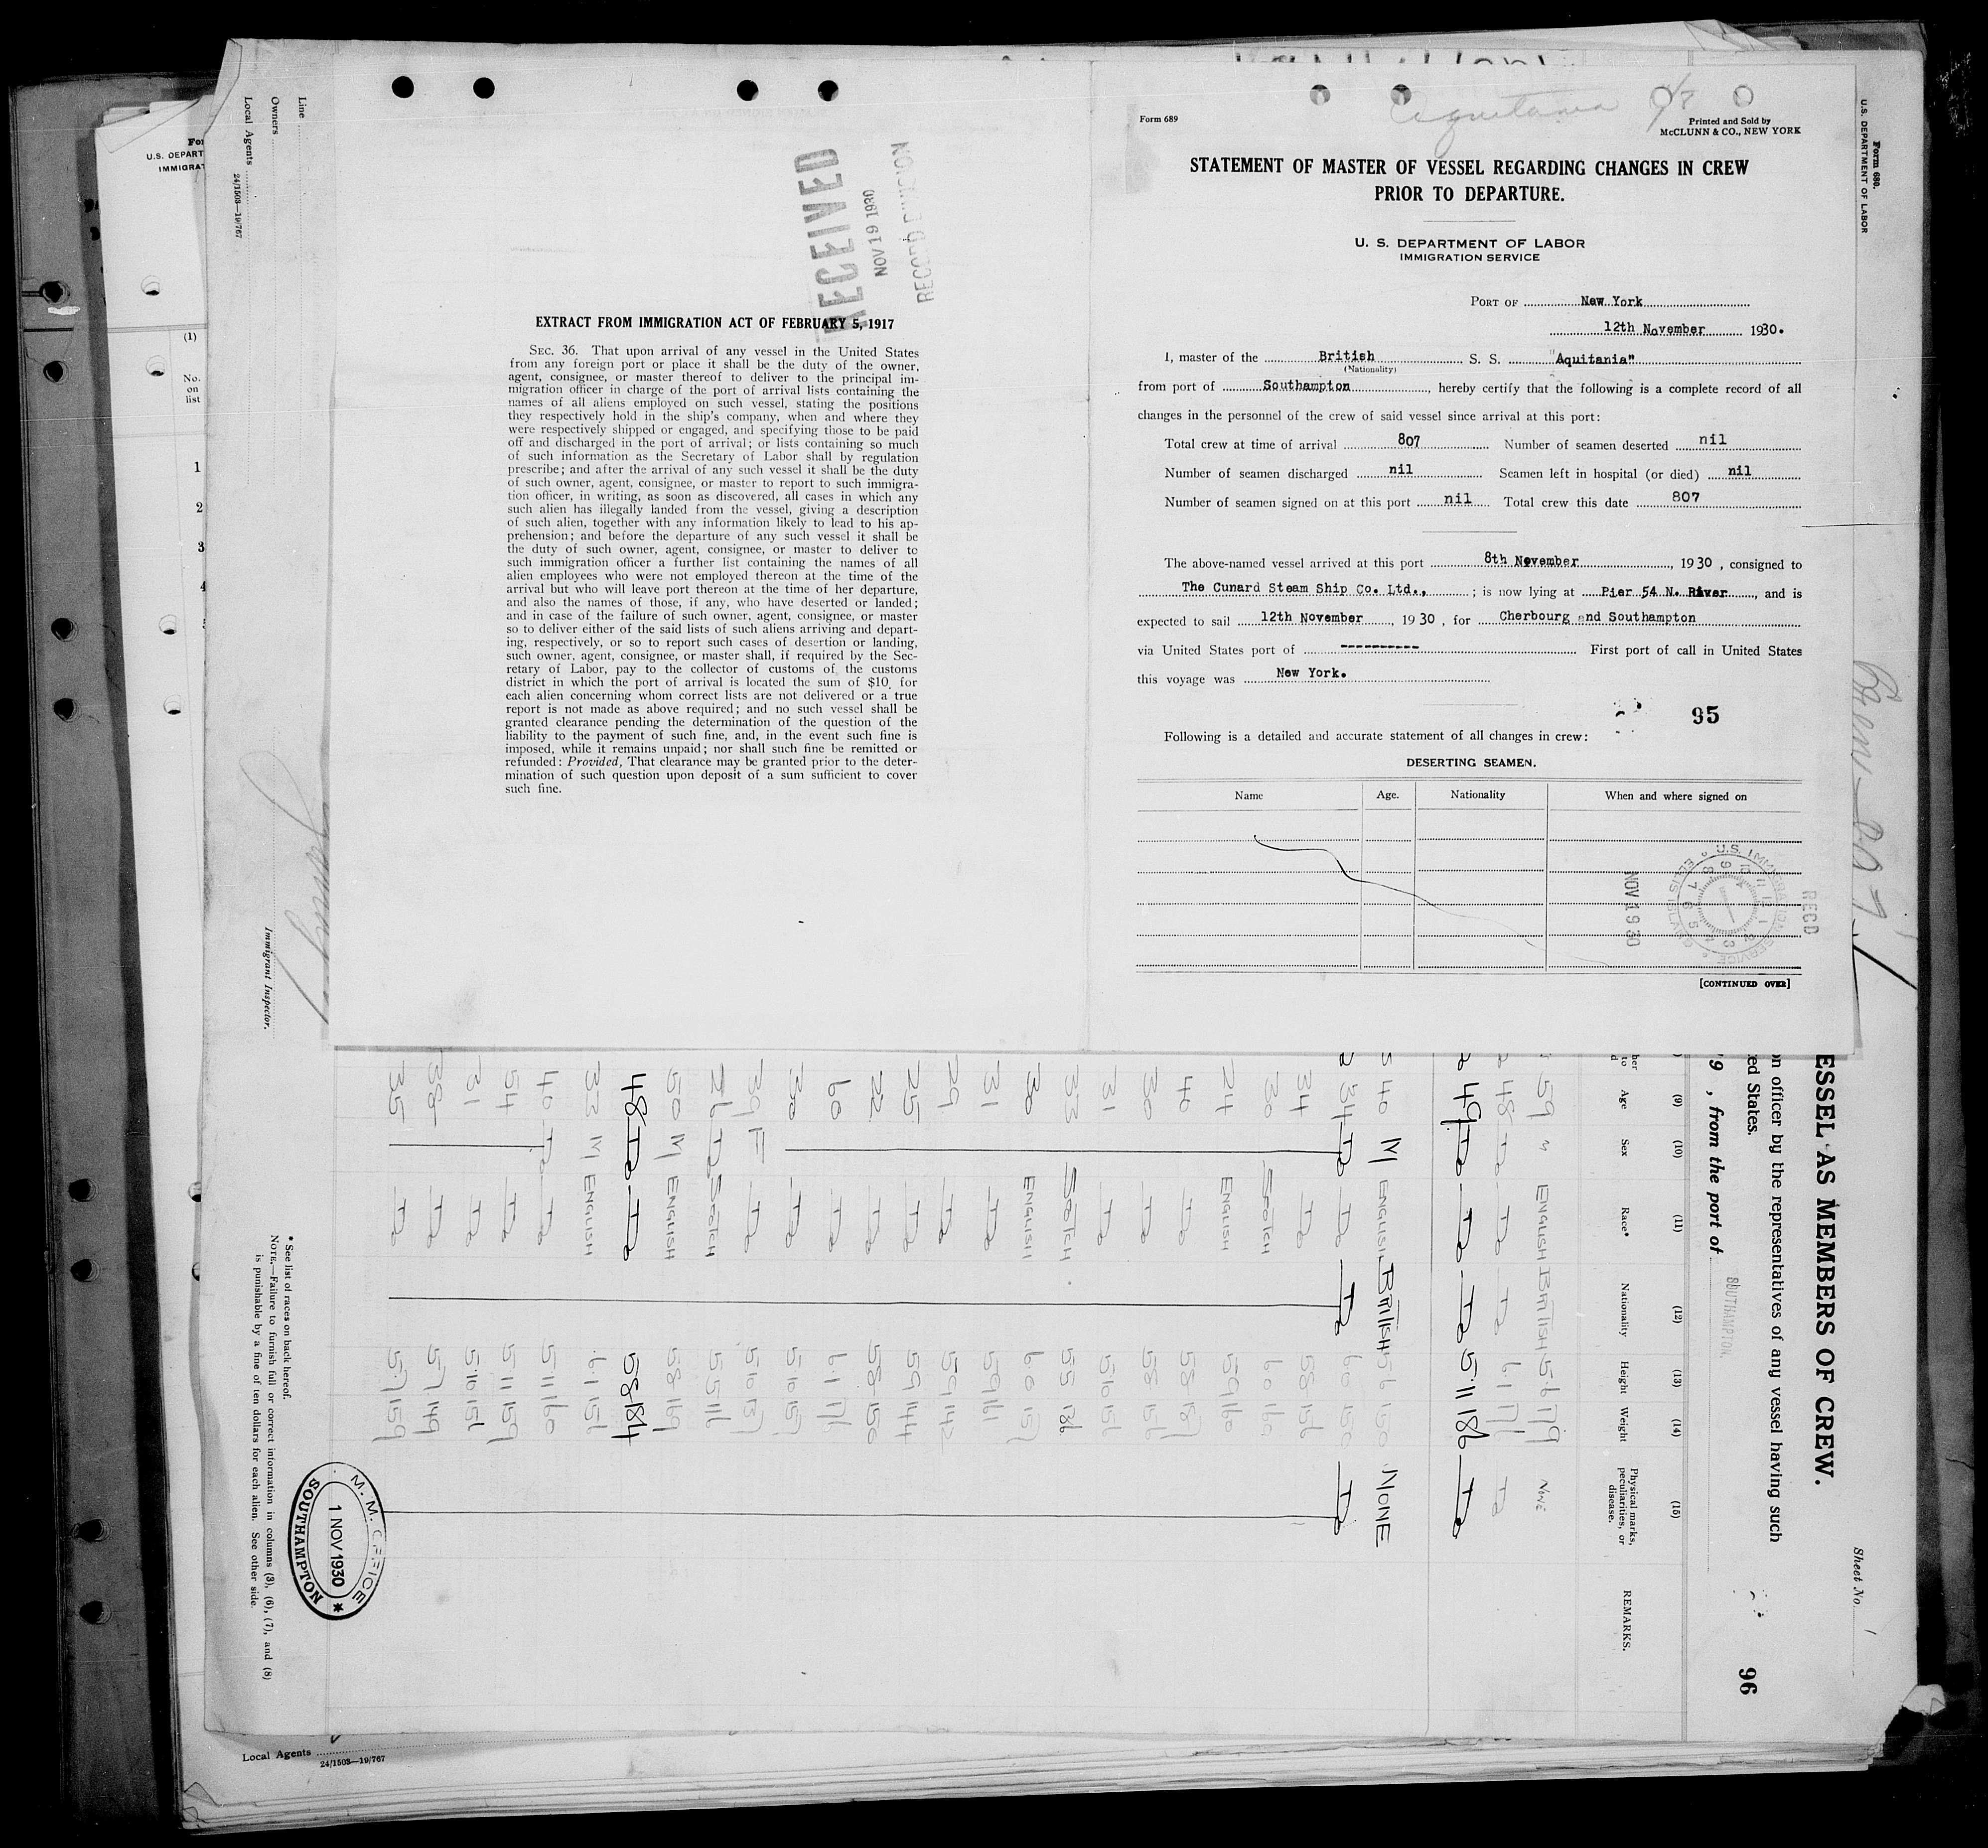 EXTRACT FROM IMMIGRATION ACT OF FEBRUARY 5, 1917
SEC. 36. That upon arrival of any vessel in the United States
from any foreign port or place it shall be the duty of the owner,
agent, consignee, or master thereof to deliver to the principal im-
migration officer in charge of the port of arrival lists containing the
names of all aliens employed on such vessel, stating the positions
they respectively hold in the ship's company, when and where they
were respectively shipped or engaged, and specifying those to be paid
off and discharged in the port of arrival; or lists containing so much
of such information as the Secretary of Labor shall by regulation
prescribe; and after the arrival of any such vessel it shall be the duty
of such owner, agent, consignee, or master to report to such immigra-
tion officer, in writing, as soon as discovered, all cases in which any
such alien has illegally landed from the vessel, giving a description
of such alien, together with any information likely to lead to his ap-
prehension; and before the departure of any such vessel it shall be
the duty of such owner, agent, consignee, or master to deliver to
such immigration officer a further list containing the names of all
alien employees who were not employed thereon at the time of the
arrival but who will leave port thereon at the time of her departure,
and also the names of those, if any, who have deserted or landed;
and in case of the failure of such owner, agent, consignee, or master
so to deliver either of the said lists of such aliens arriving and depart-
ing, respectively, or so to report such cases of desertion or landing,
such owner, agent, consignee, or master shall, if required by the Sec-
retary of Labor, pay to the collector of customs of the customs
district in which the port of arrival is located the sum of $10 for
each alien concerning whom correct lists are not delivered or a true
report is not made as above required; and no such vessel shall be
granted clearance pending the determination of the question of the
liability to the payment of such fine, and, in the event such fine is
imposed, while it remains unpaid; nor shall such fine be remitted or
refunded: Provided, That clearance may be granted prior to the deter-
mination of such question upon deposit of a sum sufficient to cover
such fine.
RECEIVED
NOV 19 1930
Aquitania
Form 689
Printed and Sold by
McCLUNN & CO., NEW YORK
STATEMENT OF MASTER OF VESSEL REGARDING CHANGES IN CREW
PRIOR TO DEPARTURE.
U. S. DEPARTMENT OF LABOR
IMMIGRATION SERVICE
PORT OF New York
12th November 1930.
I, master of the British S. S. "Aquitania"
(Nationality)
from port of Southampton, hereby certify that the following is a complete record of all
changes in the personnel of the crew of said vessel since arrival at this port:
Total crew at time of arrival 807 Number of seamen deserted nil
Number of seamen discharged nil Seamen left in hospital (or died) nil
Number of seamen signed on at this port nil Total crew this date 807
The above-named vessel arrived at this port 8th November, 1930, consigned to
The Cunard Steam Ship Co. Ltd., ; is now lying at Pier 54 N. River, and is
expected to sail 12th November, 1930, for Cherbourg and Southampton
via United States port of ---------- First port of call in United States
this voyage was New York.
95
Following is a detailed and accurate statement of all changes in crew:
DESERTING SEAMEN.
Name Age. Nationality When and where signed on
U.S. IMMIGRATION SERVICE ELLIS ISLAND
RECD
[CONTINUED OVER]
Form 680.
U.S. DEPARTMENT OF LABOR
ESSEL AS MEMBERS OF CREW.
Sheet No. 1
on officer by the representatives of any vessel having such
ed States.
19 , from the port of SOUTHAMPTON.
96
(9) (10) (11) (12) (13) (14) (15)
Age Sex Race* Nationality Height Weight Physical marks, peculiarities, or disease. REMARKS.
59 M ENGLISH BRITISH 5 6 179 NONE
48 Do Do Do 6 1 171 Do
49 Do Do Do 5 11 186 Do
40 M ENGLISH BRITISH 5 6 150 NONE
34 Do Do Do 6 0 150 Do
34 Do 5 8 156
30 SCOTCH 6 0 160
24 ENGLISH 5 9 160
40 Do 5 8 157
30 Do 5 8 156
31 Do 5 10 156
33 SCOTCH 5 5 136
30 ENGLISH 6 0 157
31 Do 5 9 161
29 Do 5 9 142
25 Do 5 9 144
22 Do 5 8 150
60 Do 6 1 176
30 Do 5 10 157
39 F Do 5 10 137
26 Do SCOTCH 5 5 116
50 M ENGLISH 5 8 169
48 Do Do 5 8 184
33 M ENGLISH 6 1 156
40 Do Do 5 11 160
54 Do 5 11 159
31 Do 5 10 156
38 Do 5 7 149
35 Do 5 7 159
M. M. OFFICE
1 NOV 1930
SOUTHAMPTON
* See list of races on back hereof.
NOTE.—Failure to furnish full or correct information in columns (3), (6), (7), and (8)
is punishable by a fine of ten dollars for each alien. See other side.
Immigrant Inspector.
Line
Owners
Local Agents
24/1503—19/767
U.S. DEPART
IMMIGRAT
(1)
No.
on
list
1
2
3
4
Local Agents
24/1503—19/767